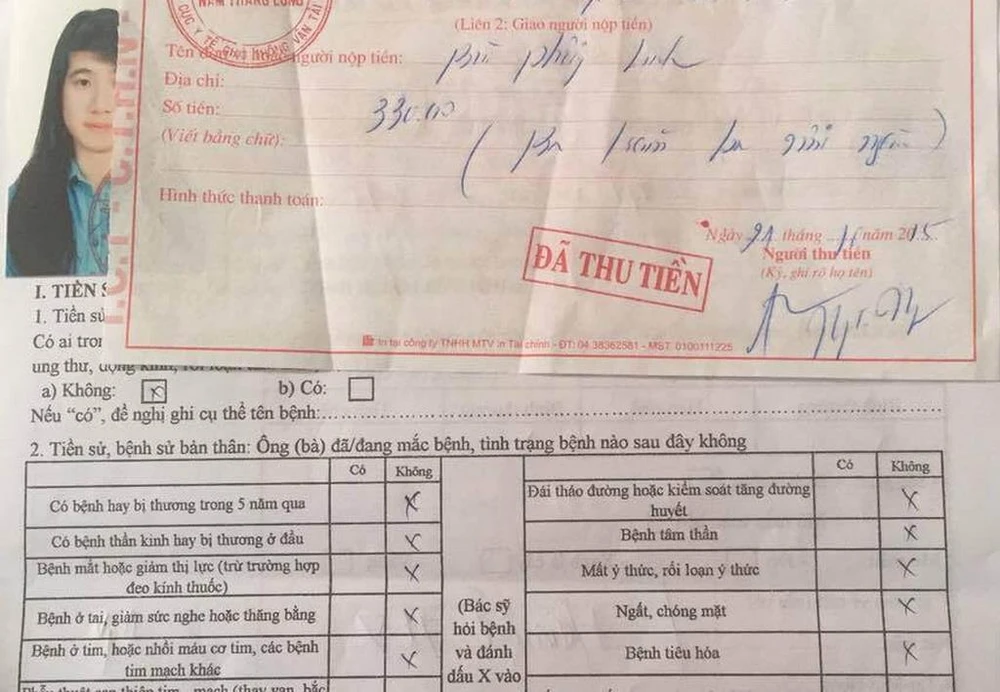 NAM THĂNG LONG
CỤC Y TẾ GIAO THÔNG VẬN TẢI
(Liên 2: Giao người nộp tiền)
Tên người nộp tiền: Bùi Thùy Linh
Địa chỉ:
Số tiền: 330.000
(Viết bằng chữ): (Ba trăm ba mươi nghìn)
Hình thức thanh toán:
Ngày 21 tháng 11 năm 2015
ĐÃ THU TIỀN
Người thu tiền
(Ký, ghi rõ họ tên)
In tại công ty TNHH MTV in Tài chính - ĐT: 04 38362581 - MST: 0100111225
I. TIỀN S
1. Tiền sử
Có ai tror
ung thư, động kinh, rối loạn
a) Không: X b) Có:
Nếu “có”, đề nghị ghi cụ thể tên bệnh:
2. Tiền sử, bệnh sử bản thân: Ông (bà) đã/đang mắc bệnh, tình trạng bệnh nào sau đây không
Có Không
Có bệnh hay bị thương trong 5 năm qua X
Có bệnh thần kinh hay bị thương ở đầu X
Bệnh mắt hoặc giảm thị lực (trừ trường hợp
đeo kính thuốc) X
Bệnh ở tai, giảm sức nghe hoặc thăng bằng X
Bệnh ở tim, hoặc nhồi máu cơ tim, các bệnh
tim mạch khác X
(Bác sỹ
hỏi bệnh
và đánh
dấu X vào
Có Không
Đái tháo đường hoặc kiểm soát tăng đường
huyết X
Bệnh tâm thần X
Mất ý thức, rối loạn ý thức X
Ngất, chóng mặt X
Bệnh tiêu hóa X